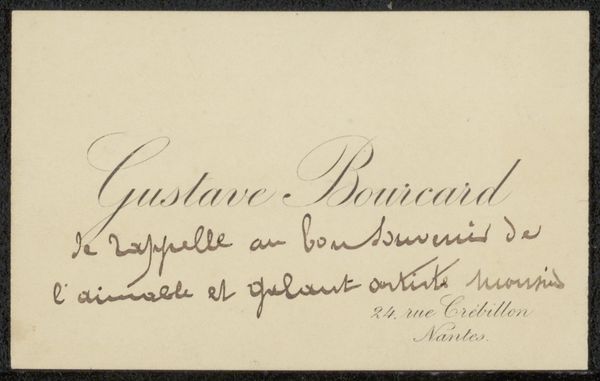 Gustave Bourcard
se rappelle au bon souvenir de
l'aimable et galant artiste monsieur
24, rue Crébillon
Nantes.